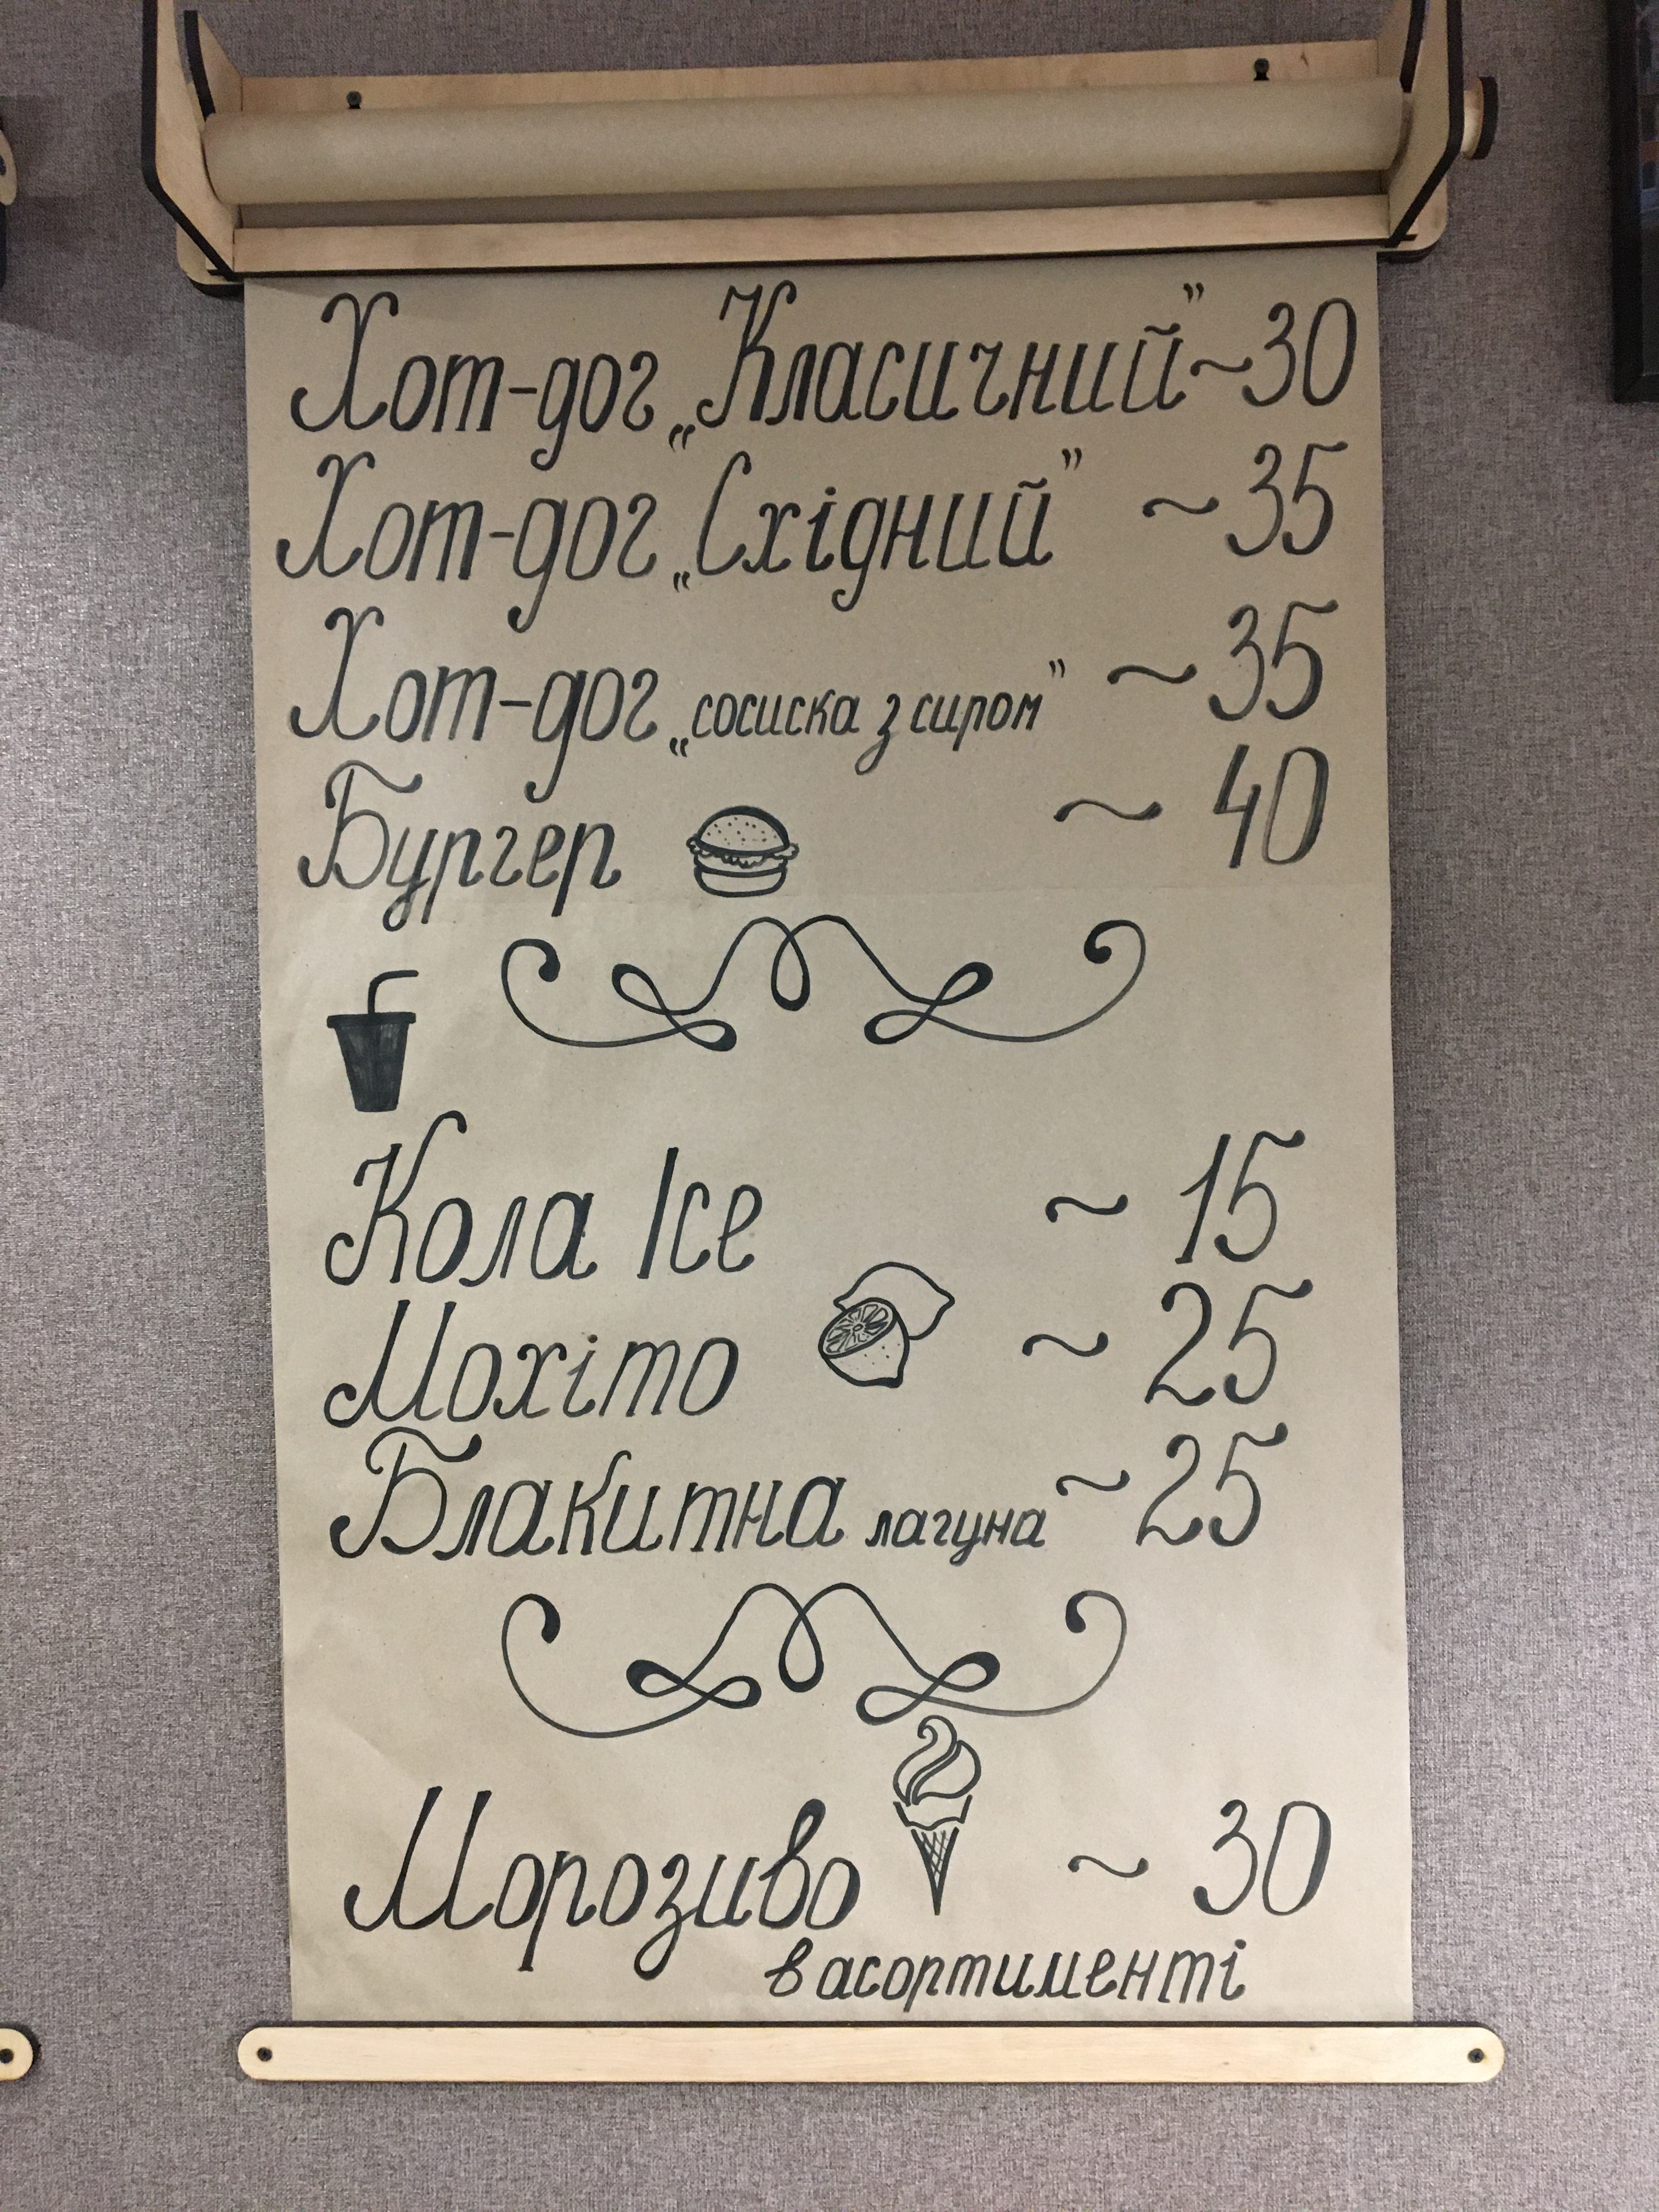 Хот-дог „Класичний” ~ 30
Хот-дог „Східний” ~ 35
Хот-дог „сосиска з сиром” ~ 35
Бургер ~ 40
Кола Ice ~ 15
Мохіто ~ 25
Блакитна лагуна ~ 25
Морозиво ~ 30
в асортименті